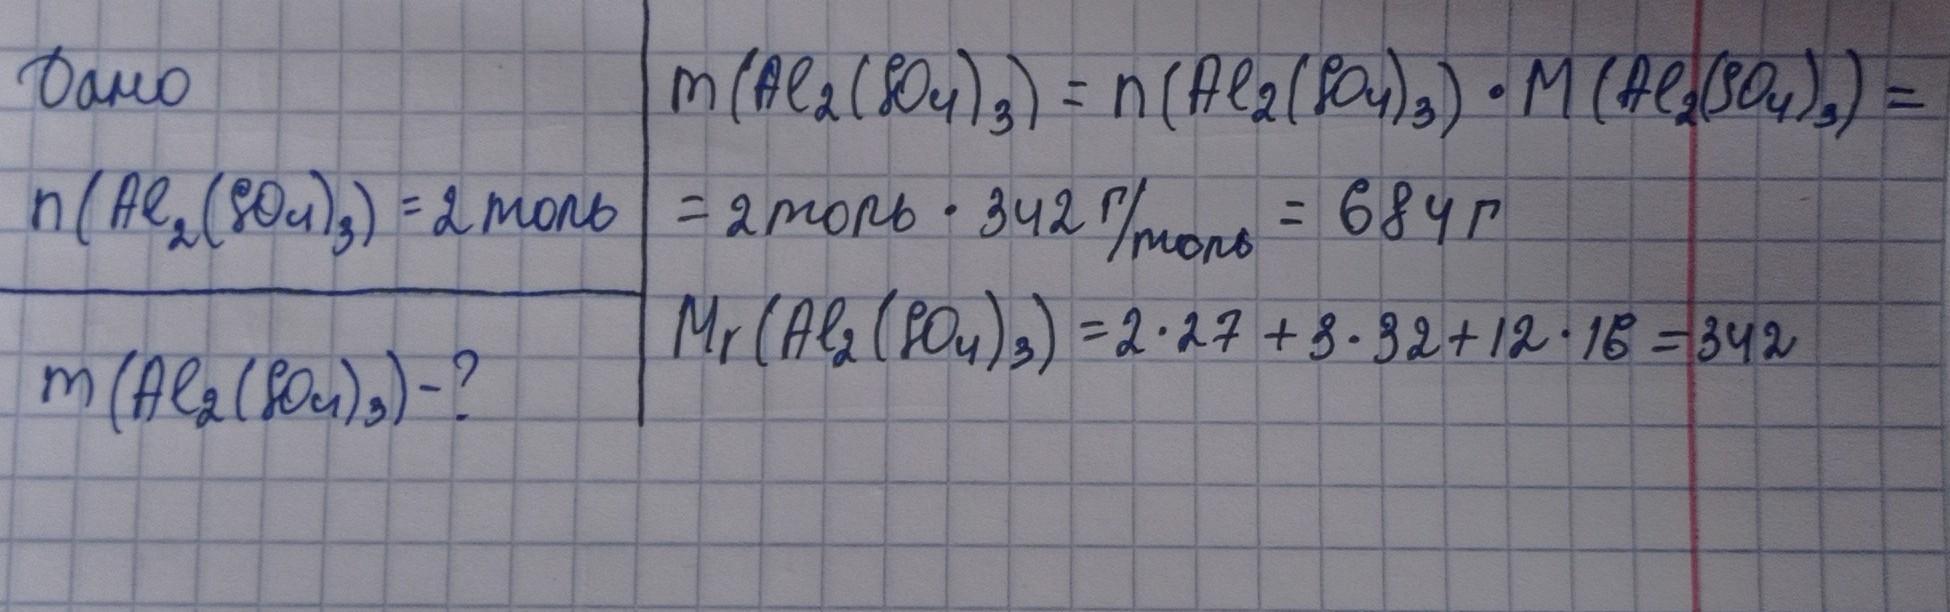 Дано
n(Al₂(SO₄)₃) = 2 моль
m(Al₂(SO₄)₃) - ?
m(Al₂(SO₄)₃) = n(Al₂(SO₄)₃) · M(Al₂(SO₄)₃) =
= 2 моль · 342 г/моль = 684 г
Mr(Al₂(SO₄)₃) = 2·27 + 3·32 + 12·16 = 342